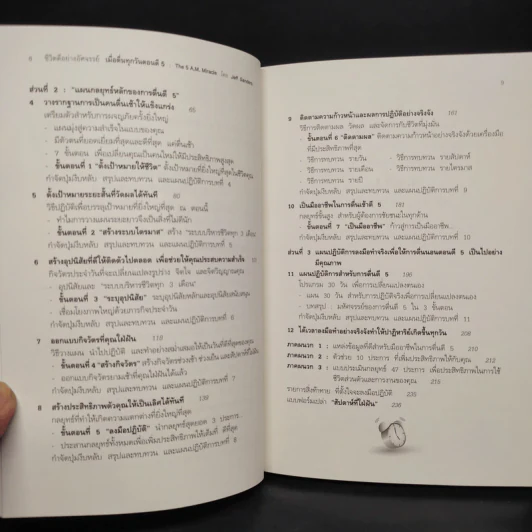 8 ชีวิตดีอย่างอัศจรรย์ เมื่อตื่นทุกวันตอนตี 5 - The 5 A.M. Miracle โดย Jeff Sanders
ส่วนที่ 2 : "แผนกลยุทธ์หลักของการตื่นตี 5"
4 วางรากฐานการเป็นคนตื่นเช้าให้แข็งแกร่ง 65
เตรียมตัวสำหรับการผจญภัยครั้งยิ่งใหญ่
- แผนมุ่งสู่ความสำเร็จในแบบของคุณ
- มีตัวตนที่ยอดเยี่ยมที่สุดและดีที่สุด แค่ตื่นเช้า
- 7 ขั้นตอน เพื่อเปลี่ยนคุณเป็นคนใหม่ให้มีประสิทธิภาพสูงสุด
- ขั้นตอนที่ 1 "ตั้งเป้าหมายให้ชีวิต" ตั้งเป้าหมายที่ยิ่งใหญ่ที่สุดในชีวิตคุณ
กำจัดปุ่มงีบหลับ สรุปและทบทวน และแผนปฏิบัติการบทที่ 4
5 ตั้งเป้าหมายระยะสั้นที่วัดผลได้ทันที 80
วิธีปฏิบัติเพื่อบรรลุเป้าหมายที่ยิ่งใหญ่ที่สุด ณ ตอนนี้
- ทำไมการวางแผนระยะยาวจึงเป็นสิ่งที่ไม่ดีนัก
- ขั้นตอนที่ 2 "สร้างระบบไตรมาส" สร้าง "ระบบบริหารชีวิตทุก 3 เดือน"
กำจัดปุ่มงีบหลับ สรุปและทบทวน และแผนปฏิบัติการบทที่ 5
6 สร้างอุปนิสัยที่ดีให้ติดตัวไปตลอด เพื่อช่วยให้คุณประสบความสำเร็จ
กิจวัตรประจำวันที่จะเปลี่ยนแปลงรูปร่าง จิตใจ และจิตวิญญาณคุณ
- อุปนิสัยและ "ระบบบริหารชีวิตทุก 3 เดือน"
- ขั้นตอนที่ 3 "ระบุอุปนิสัย" ระบุอุปนิสัยหลักและอุปนิสัยสนับสนุน
- เชื่อมโยงภาพใหญ่ด้วยภารกิจประจำวัน
กำจัดปุ่มงีบหลับ สรุปและทบทวน และแผนปฏิบัติการบทที่ 6
7 ออกแบบกิจวัตรที่คุณใฝ่ฝัน 110
วิธีวางแผน นำไปปฏิบัติ และทำอย่างสม่ำเสมอให้เป็นวันที่ดีที่สุดของคุณ
- ขั้นตอนที่ 4 "สร้างกิจวัตร" สร้างกิจวัตรช่วงเช้า ช่วงเย็น
- ออกแบบกิจวัตรยามเช้าที่คุณใฝ่ฝันได้แล้ว
กำจัดปุ่มงีบหลับ สรุปและทบทวน และแผนปฏิบัติการบทที่ 7
8 สร้างประสิทธิภาพตัวคุณให้เป็นเลิศได้ทันที 139
กลยุทธ์ที่ทำให้เกิดความแตกต่างที่ยิ่งใหญ่ที่สุด
- ขั้นตอนที่ 5 "ลงมือปฏิบัติ" นำกลยุทธ์สุดยอด 3 ประการ
- ประสานกลยุทธ์ทั้งหมดเพื่อเพิ่มประสิทธิภาพให้เต็มที่ ดีที่สุด
กำจัดปุ่มงีบหลับ สรุปและทบทวน และแผนปฏิบัติการบทที่ 8
9
9 ติดตามความก้าวหน้าและผลการปฏิบัติอย่างจริงจัง 161
วิธีการติดตามผล วัดผล และจัดการกับชีวิตที่มุ่งมั่น
- ขั้นตอนที่ 6 "ติดตามผล" ติดตามความก้าวหน้าอย่างจริงจังด้วยเครื่องมือ
ที่มีประสิทธิภาพที่สุด
- วิธีการทบทวน รายวัน - วิธีการทบทวน รายสัปดาห์
- วิธีการทบทวน รายเดือน - วิธีการทบทวน รายไตรมาส
- วิธีการทบทวน รายปี
กำจัดปุ่มงีบหลับ สรุปและทบทวน และแผนปฏิบัติการบทที่ 9
10 เป็นมืออาชีพในการตื่นเช้าตี 5
กลยุทธ์ขั้นสูง สำหรับผู้ต้องการชัยชนะในทุกด้าน
- ขั้นตอนที่ 7 "เป็นมืออาชีพ" ก้าวสู่การเป็นมืออาชีพ
กำจัดปุ่มงีบหลับ สรุปและทบทวน และแผนปฏิบัติการบทที่ 10
ส่วนที่ 3 แผนปฏิบัติการลงมือทำจริงเพื่อให้การตื่นนอนตอนตี 5 เป็นไปอย่าง
มีคุณภาพ
11 แผนปฏิบัติการสำหรับการตื่นตี 5 190
โปรแกรม 30 วัน เพื่อการเปลี่ยนแปลงตนเอง
- แผน 30 วัน สำหรับการปฏิบัติจริงเพื่อการเปลี่ยนแปลงตนเอง
- บทสรุป : มหัศจรรย์ของการตื่นตี 5
กำจัดปุ่มงีบหลับ สรุปและทบทวน และแผนปฏิบัติการบทที่ 11
12 ได้เวลาลงมือทำอย่างจริงจังทำให้ปาฏิหาริย์เกิดขึ้นทุกวัน
ภาคผนวก 1 : แหล่งข้อมูลที่ดีสำหรับมืออาชีพในการตื่นตี 5 210
ภาคผนวก 2 : ตัวช่วย 10 ประการ ที่เพิ่มประสิทธิภาพให้กับคุณ 212
ภาคผนวก 3 : แบบประเมินกลยุทธ์ 47 ประการ เพื่อประสิทธิภาพในการใช้
ชีวิตส่วนตัวและการงานของคุณ 215
รายการสิ่งท้าทาย ที่ตั้งใจจะลงมือปฏิบัติ 235
แบบฟอร์มเปล่า "สัปดาห์ที่ใฝ่ฝัน" 236